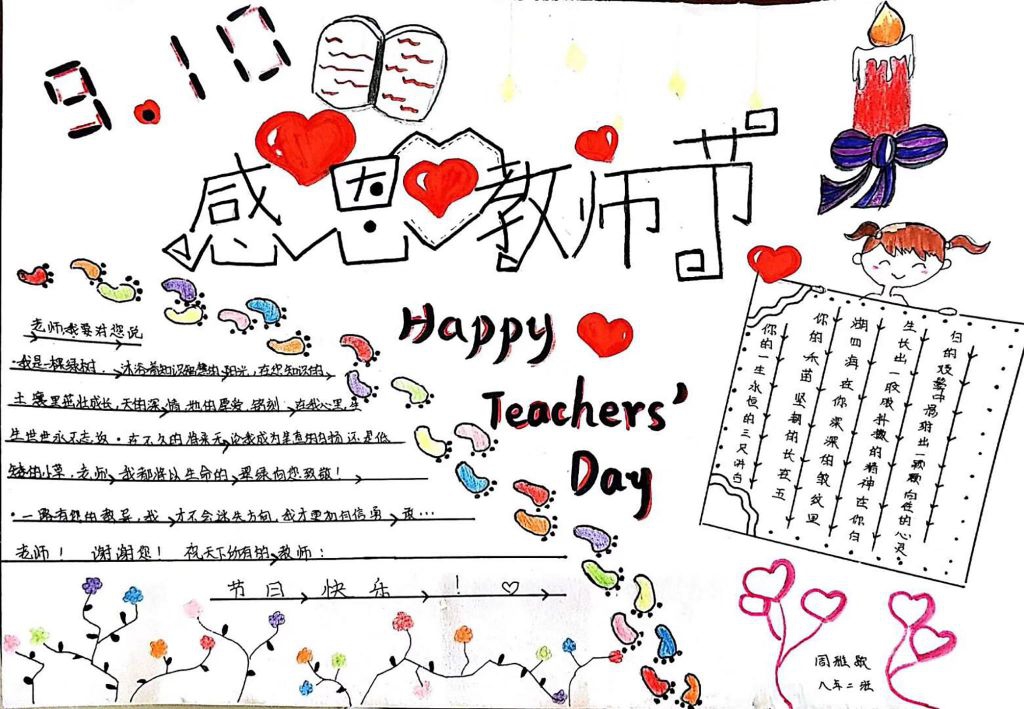 9.10
感恩教师节
Happy
Teachers'
Day
老师,我要对您说
·我是一棵绿树.沐浴着知识智慧的阳光,在您知识的
土壤里茁壮成长,天的深情地的厚爱铭刻在我心里,生
生世世永不忘怀.在不久的将来无论我成为挺直的白杨还是低
矮的小草,老师,我都将以生命的翠绿向您致敬!
·一路有您的教导,我才不会迷失方向,我才更加有信勇敢···
老师! 谢谢您! 祝天下所有的教师:
节日快乐!
你的一生永恒的三尺讲台
你的禾苗坚韧的长在五
湖四海在你深深的教效里
生长出一的精神在你白
归的中出一颗颗向性的心灵
周雅
八年二班